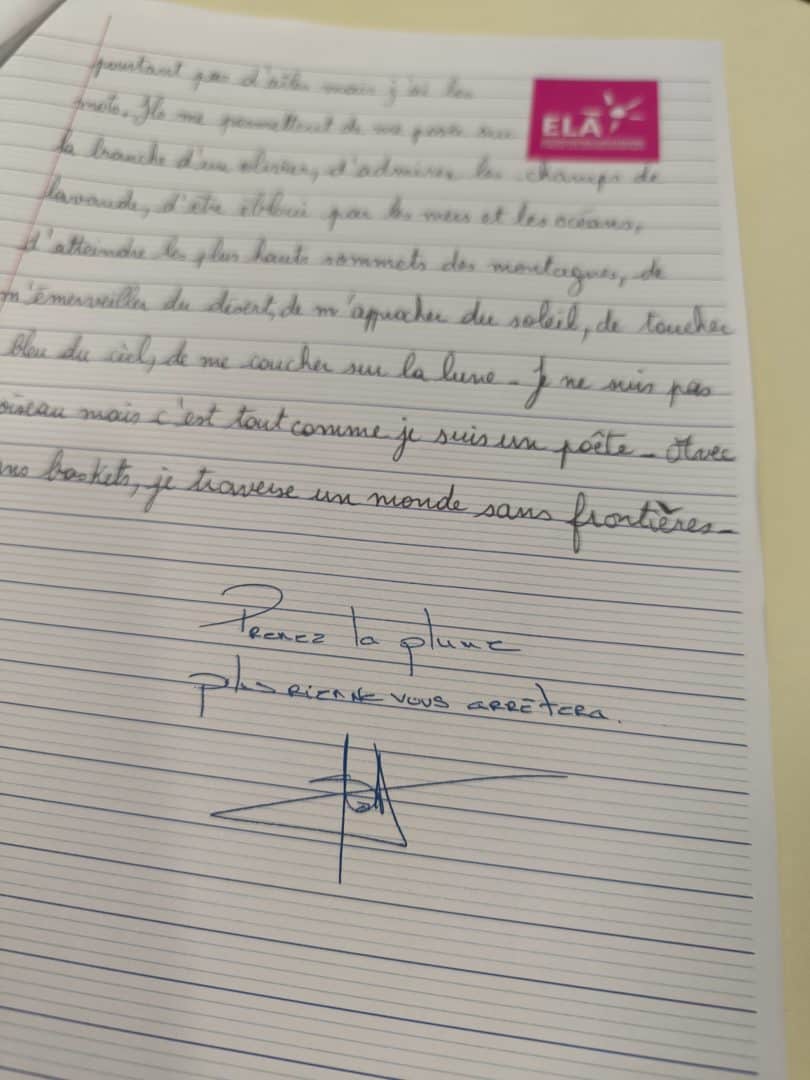 pourtant pas d'ailes mais j'ai les
mots. Ils me permettent de me poser sur
ELA
la branche d'un olivier, d'admirer les champs de
lavande, d'être ébloui par les mers et les océans,
d'atteindre les plus hauts sommets des montagnes, de
m'émerveiller du désert, de m'approcher du soleil, de toucher
bleu du ciel, de me coucher sur la lune - Je ne suis pas
oiseau mais c'est tout comme je suis un poête - Avec
mes baskets, je traverse un monde sans frontières -
Prenez la plume
plus rien ne vous arrêtera.